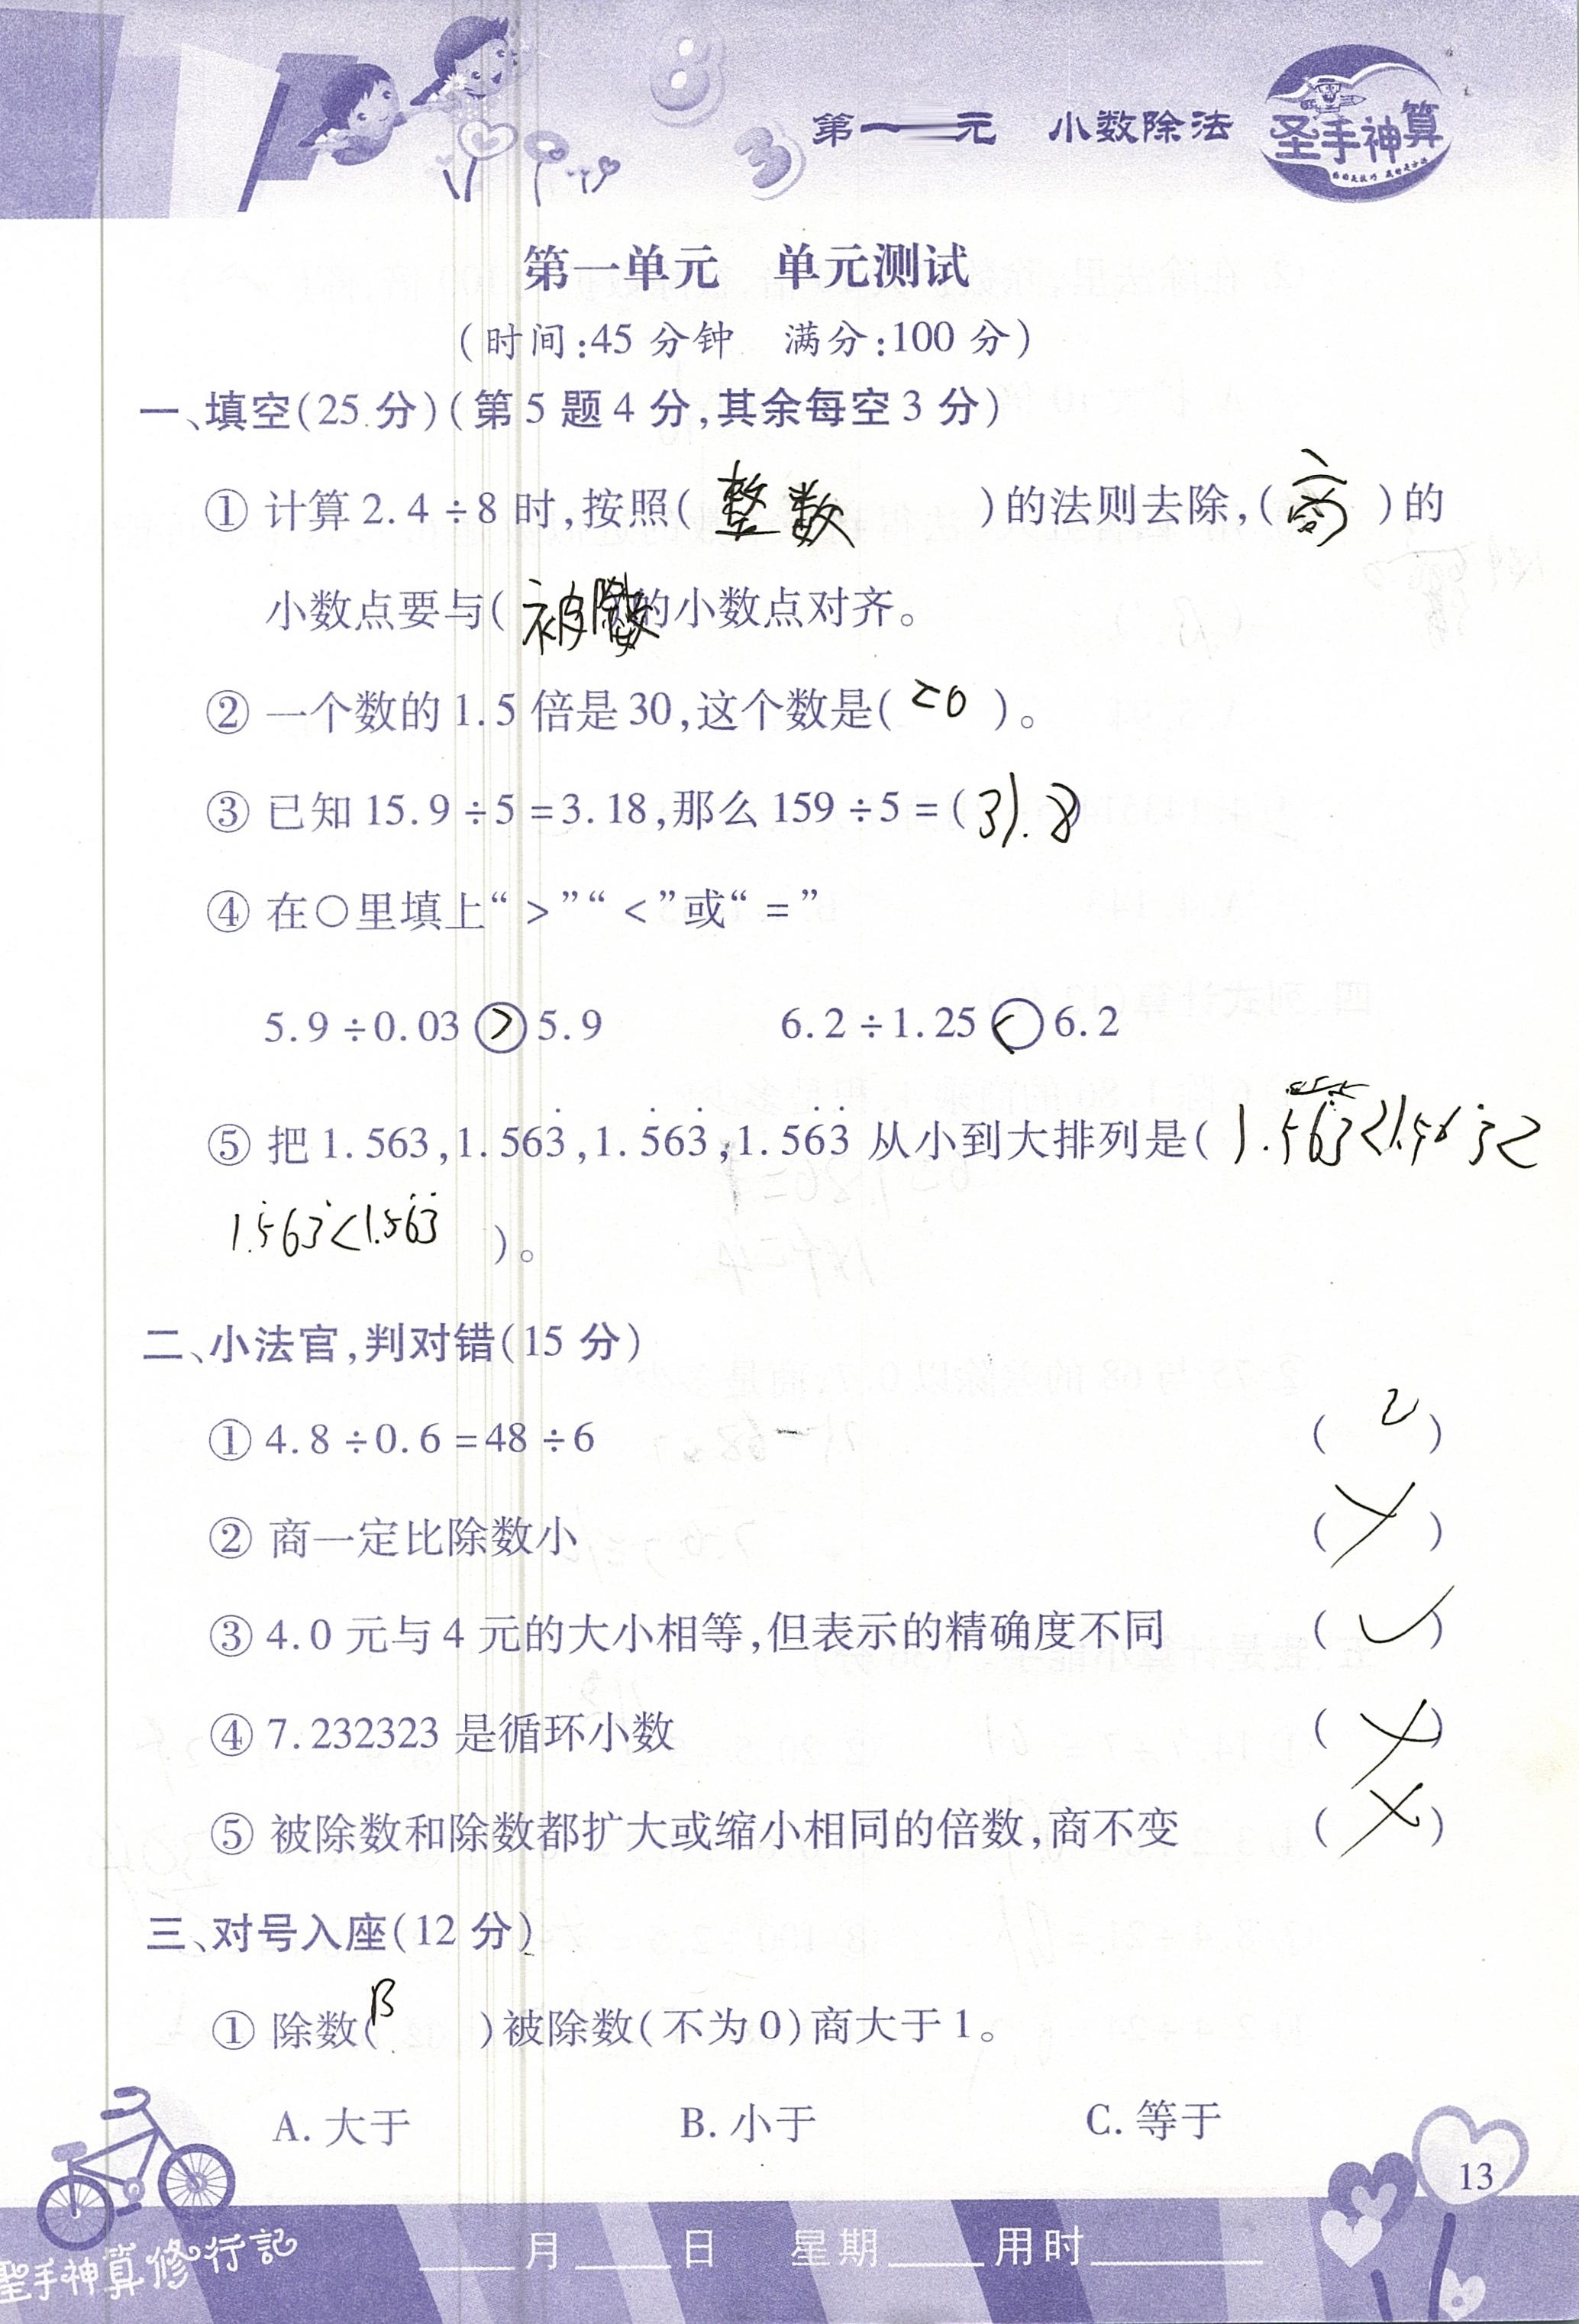 第一 元 小数除法
圣手神算
第一单元 单元测试
(时间:45 分钟 满分:100 分)
一、填空(25 分)(第 5 题 4 分,其余每空 3 分)
① 计算 2.4÷8 时,按照( 整数 )的法则去除,( 商 )的
小数点要与( 被除数的小数点对齐。
② 一个数的 1.5 倍是 30,这个数是( 20 )。
③ 已知 15.9÷5=3.18,那么 159÷5=(31.8)
④ 在○里填上“>”“<”或“=”
5.9÷0.03 > 5.9 6.2÷1.25 < 6.2
⑤ 把 1.563,1.563̇,1.5̇63̇,1.56̇3̇ 从小到大排列是( 1.563<1.563̇<
1.5̇63̇<1.56̇3̇ )。
二、小法官,判对错(15 分)
① 4.8÷0.6=48÷6 ( )
② 商一定比除数小 (×)
③ 4.0 元与 4 元的大小相等,但表示的精确度不同 (✓)
④ 7.232323 是循环小数 (×)
⑤ 被除数和除数都扩大或缩小相同的倍数,商不变 (×)
三、对号入座(12 分)
① 除数( B )被除数(不为 0)商大于 1。
A. 大于 B. 小于 C. 等于
13
聖手神算修行記
____月____日 星期____用时________